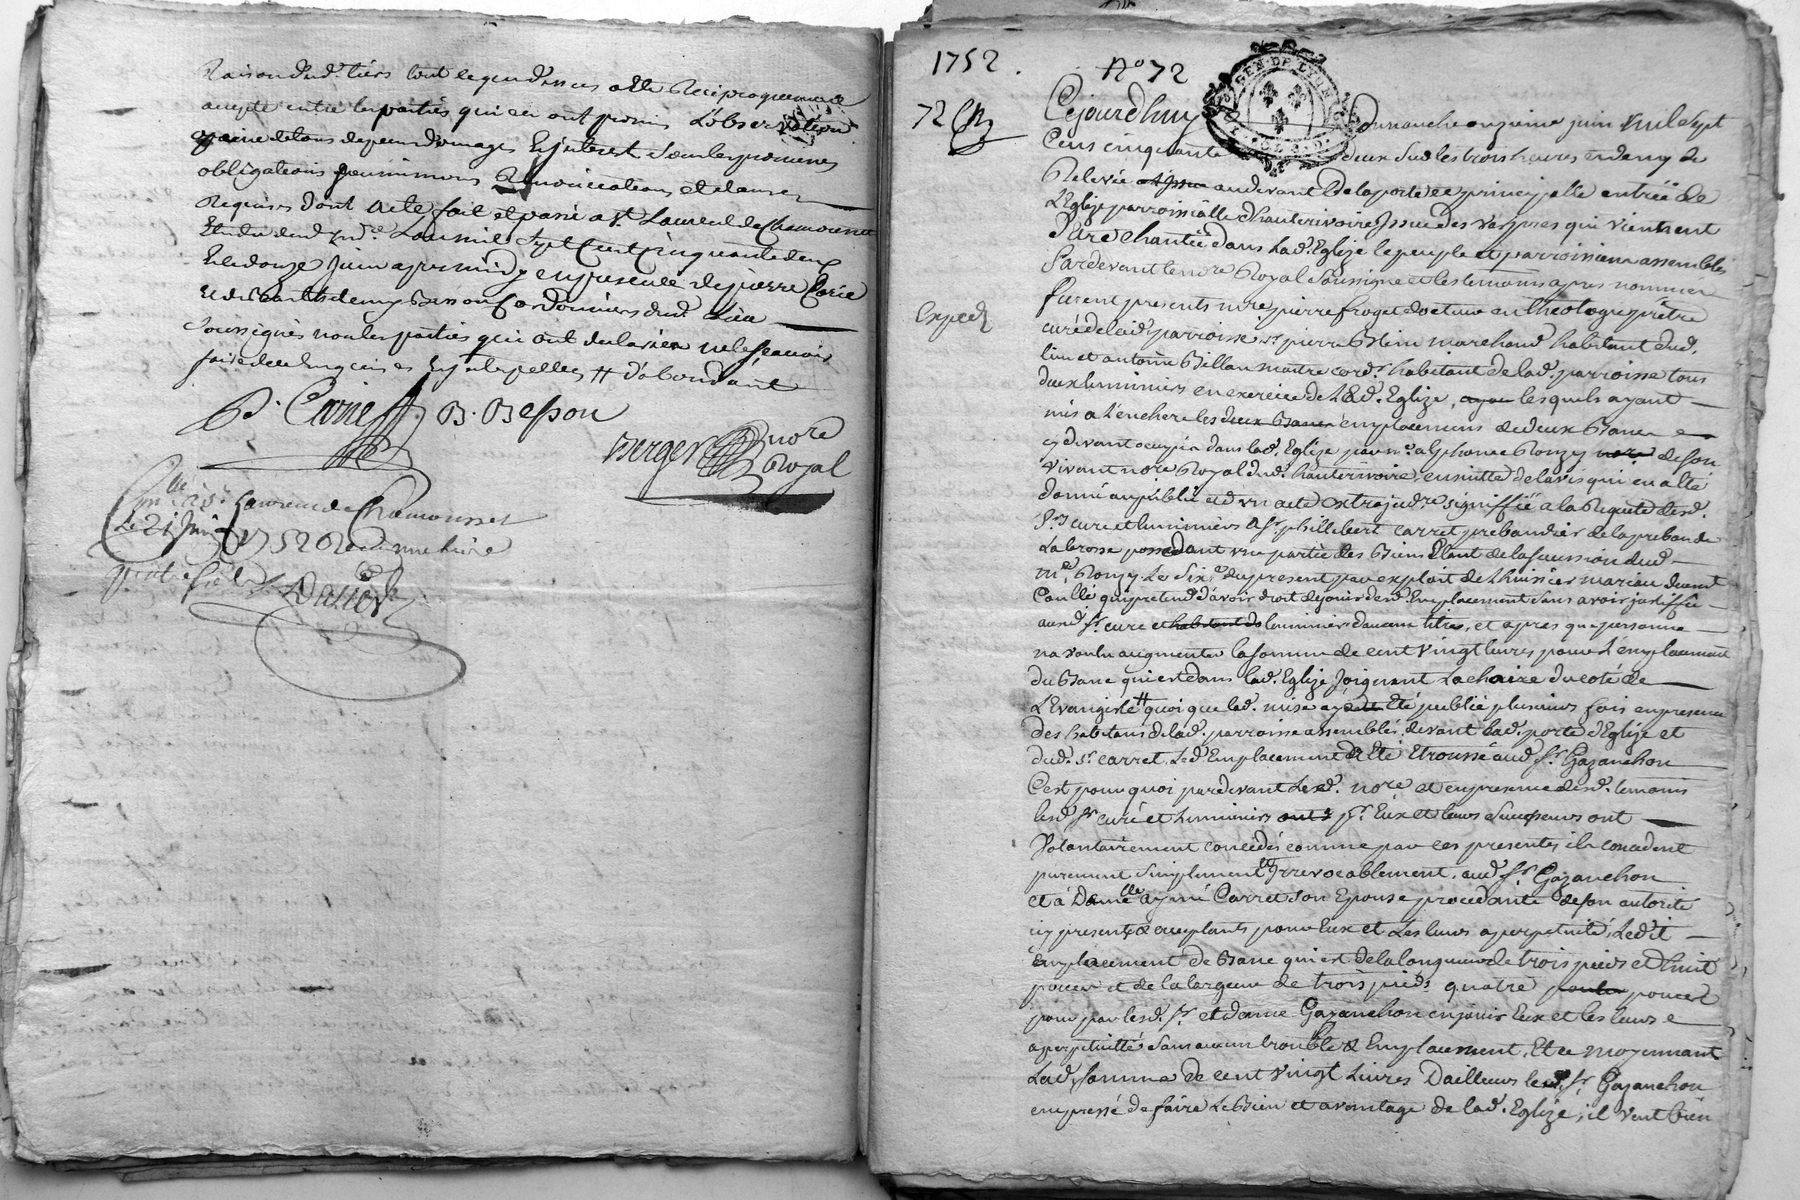 Raison dud. tiers tout
accepté entre les parties qui en ont promis l'observation
a peine de tous depens domages Et interest sous les promesses
obligations soumissions Renonciations et clauses
Requises dont acte fait et passé a St. Laurent de Chamousset
Etude dud. no.re L'an mil Sept Cent Cinquante deux
Et le douze Juin apres midy en presence de pierre Carie
et de Barthelemy Besson Cordonniers dud. Lieu
Soussignés non les parties qui ont declaré ne le sçavoir
faire de ce Enquises et Interpellées # d'abondant
P. Carie B. Besson
Berger no.re
Royal
Con.lle a St. Laurent de Chamousset
Le 21 Juin 1752 Reçu
1752. No 72
GEN. DE LYON
72
Cejourdhuy Dimanche onzieme juin mil sept
Cens cinquante deux Sur les trois heures et demy de
Relevée au devant De la porte et principalle entrée de
L'Eglize parroissialle d'hauterivoire Issue des Vespres qui viennent
D'etre chantée dans Lad. Eglize le peuple et parroissiens assemblés
Pardevant le no.re Royal Soussigné et les temoins apres nommés
furent presents m.re pierre froget docteur en theologie prêtre
curé de lad. parroisse Sr. pierre Blein marchand habitant dud.
lieu et antoine Billan maitre cord.r habitant de lad. parroisse tous
deux luminiers en exercice de Lad. Eglize, lesquels ayant
mis a L'enchere les deux Bancs emplacemens de deux Bancs
cy devant occupés dans lad. Eglize par m.e alphonce Ronzy no.re de son
vivant no.re Royal dud. hauterivoire, ensuitte de l'avis qui en a été
donné au publie et d'un acte extrajud.re signiffié a la Requete desd.
Srs. curé et luminiers a Sr. philibert Carret prebandier de la prebande
La brosse possedant une partie des Biens Etant de la succession dud.
m.e Ronzy Le Six.e du present par exploit de L'huissier mariau duement
Conllé qui pretend d'avoir droit de jouir desd. Emplacement Sans avoir justiffié
ausd. Sr. curé et habitant de luminiers d'aucun titres, et apres que personne
na voulu augmenter la somme de cent Vingt livres pour L'emplacement
du Banc qui est dans lad. Eglize Joignant La chaire du coté de
L'Evangisle # quoi que lad. mise aye été publié plusieurs fois en presence
des habitans de lad. parroisse assemblés devant lad. porte d'Eglize et
dud. Sr. carret. Led. Emplacement a Eté Etroussé aud. Sr. Gazanchon
C'est pourquoi pardevant Led. no.re et en presence desd. temoins
lesd. Sr. curé et Luminiers ont pr. Eux et leurs Successeurs ont
Volontairement concedés comme par ces presentes ils concedent
purement Simplement et Irrevocablement, aud. Sr. Gazanchon
et à Dam.lle aymé Carret son Epouse procedante de son autorité
icy presents & acceptants pour Eux et Les leurs a perpetuité, Ledit
Emplacement de Banc qui est de la longueur de trois pieds et huit
pouces et de la largeur de trois pieds quatre pouces
pour par lesd. Sr. et dame Gazanchon en jouir Eux et les leurs
a perpetuitté Sans aucun trouble & Emplacement, Et ce moyennant
Lad. somme de cent Vingt Livres D'ailleurs led. Sr. Gazanchon
empressé de faire Le Bien et avantage de lad. Eglize, il Veut bien
Exped.